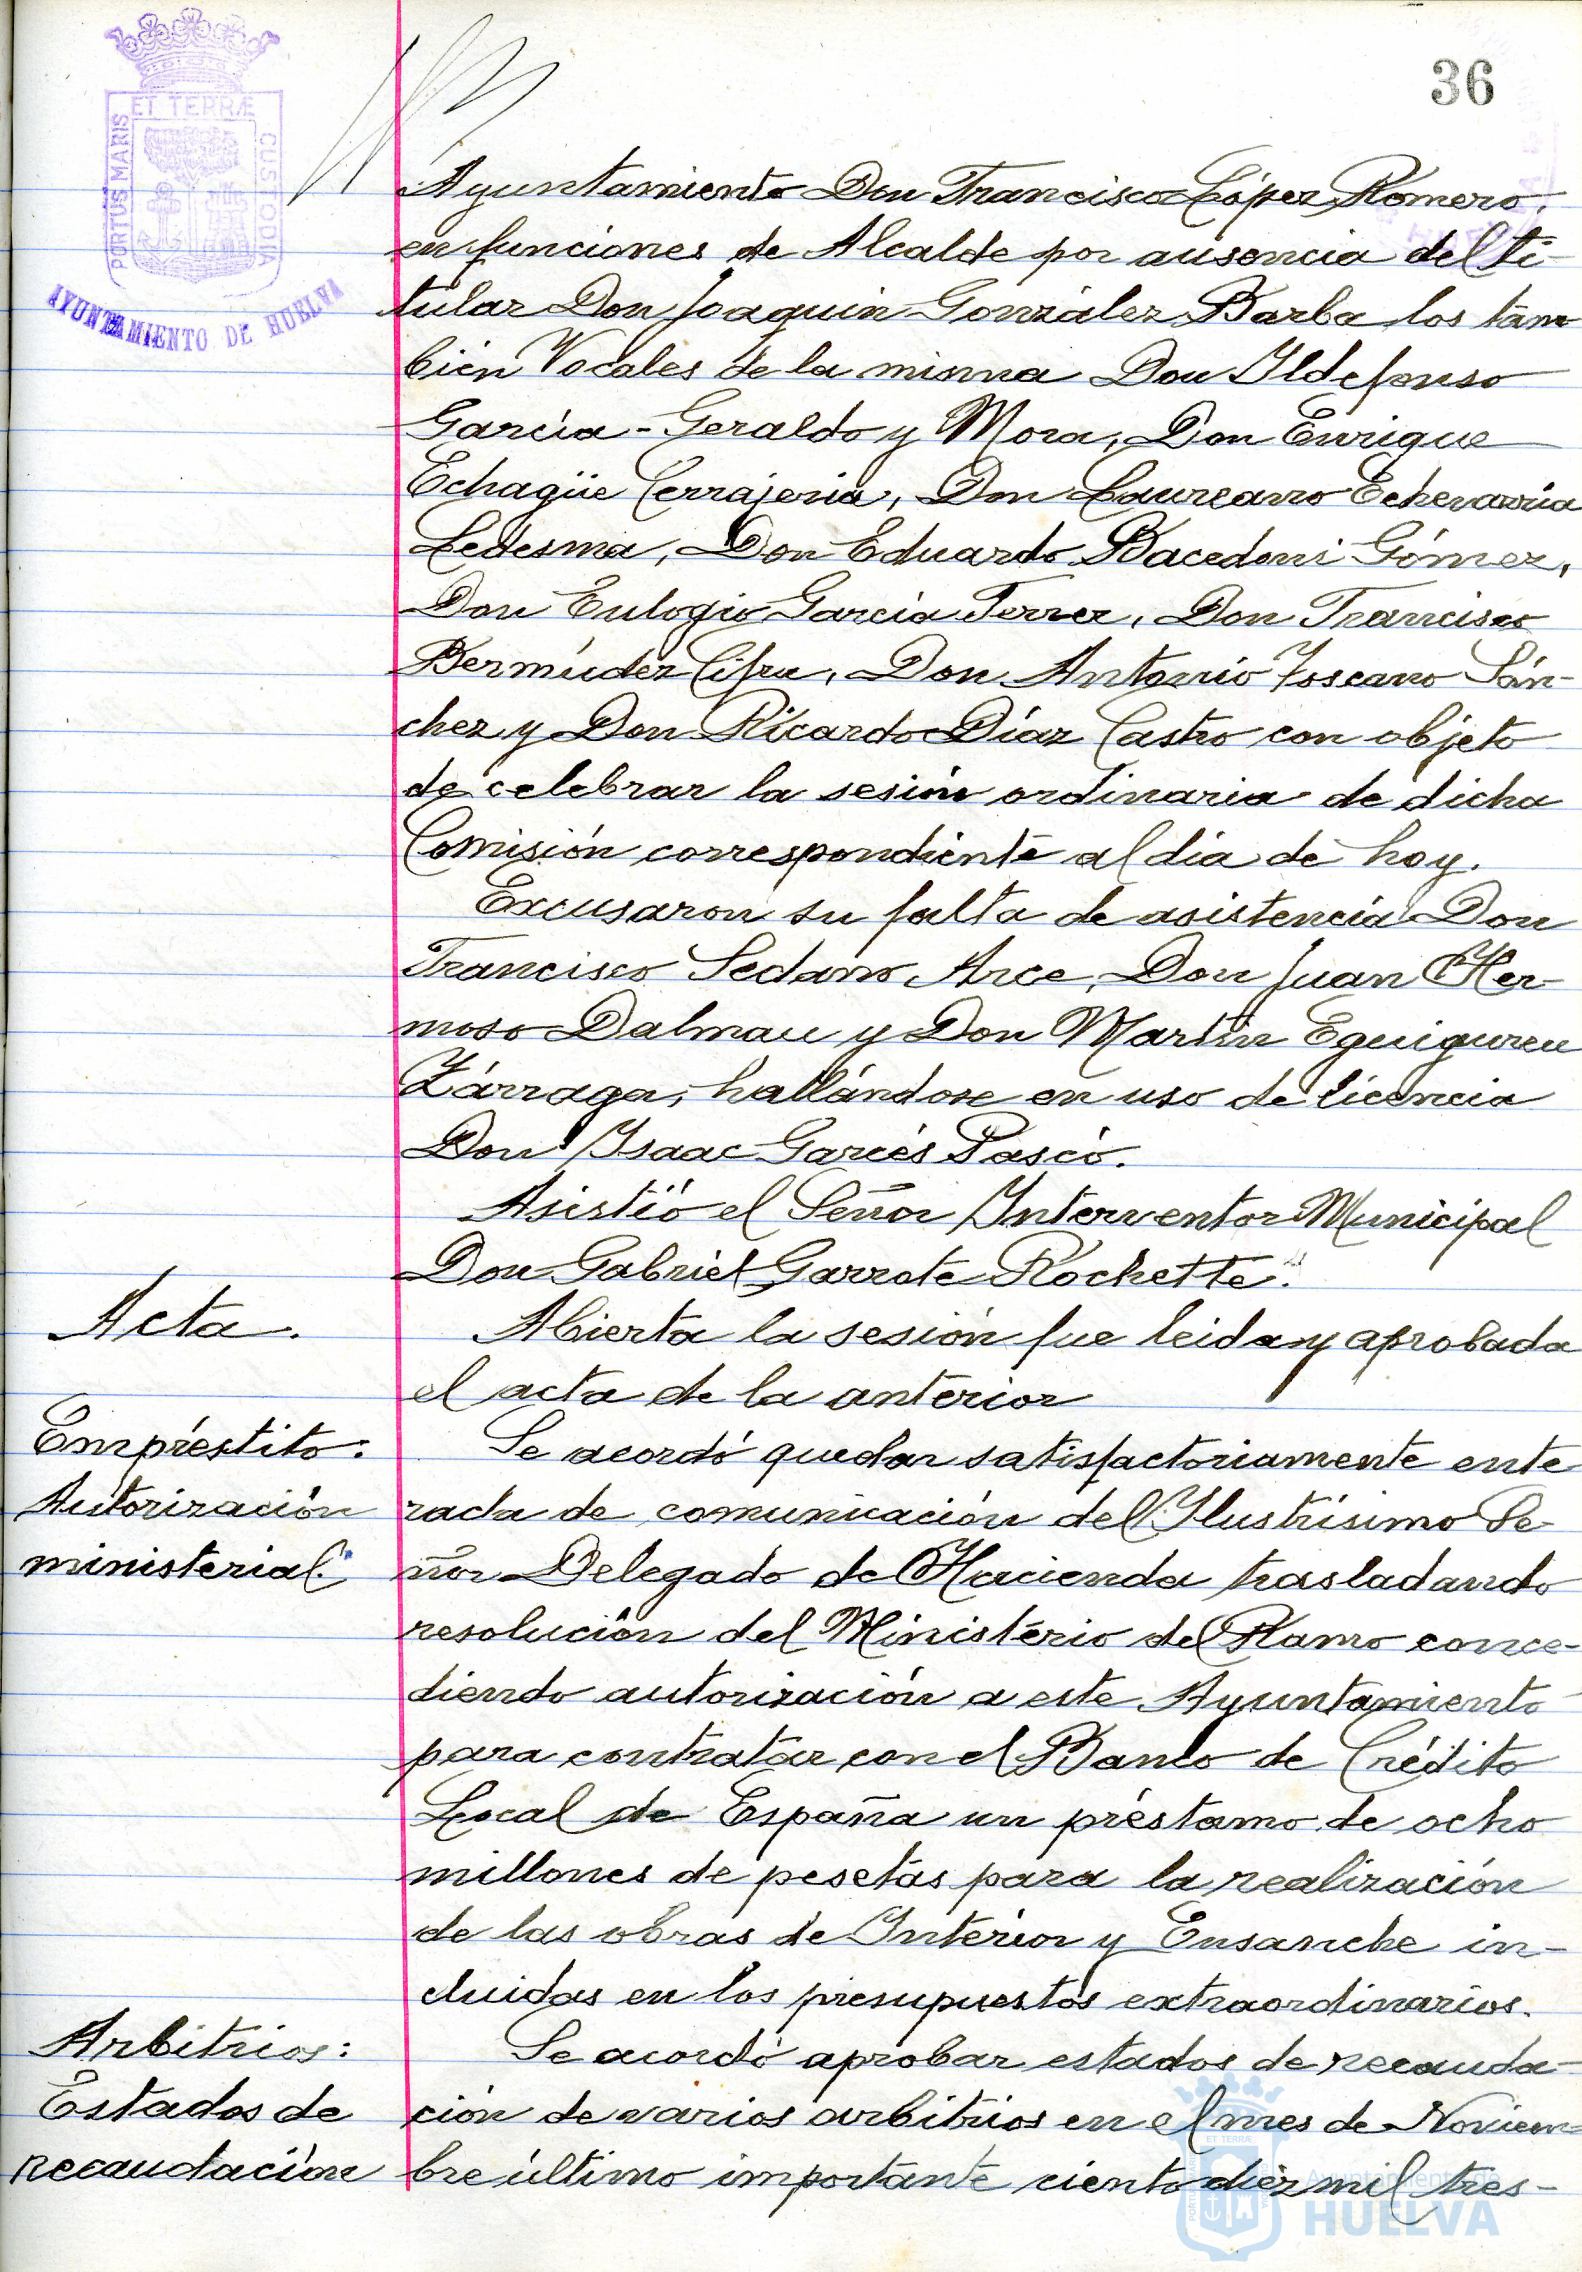 36
ET TERRÆ
PORTUS MARIS
CUSTODIA
AYUNTAMIENTO DE HUELVA
Ayuntamiento Don Francisco López Romero,
en funciones de Alcalde por ausencia del ti-
tular Don Joaquin González Barba los tam
bién Vocales de la misma Don Ildefonso
García-Geraldo y Mora, Don Enrique
Echagüe Cerrajeria, Don Laureano Echevarría
Ledesma, Don Eduardo Bacedoni Gómez,
Don Eulogio García Ferrer, Don Francisco
Bermúdez Cifru, Don Antonio Toscano Sán-
chez y Don Ricardo Díaz Castro con objeto
de celebrar la sesión ordinaria de dicha
Comisión correspondiente al dia de hoy.
Excusaron su falta de asistencia Don
Francisco Sedano Arce, Don Juan Her-
moso Dalmau y Don Martín Eguiguren
Zárraga, hallándose en uso de licencia
Don Isaac Garcés Pascó.
Asistió el Señor Interventor Municipal
Don Gabriel Garrote Rochette.
Acta.
Abierta la sesión fue leida y aprobada
el acta de la anterior
Empréstito:
Autorización
ministerial.
Se acordó quedar satisfactoriamente ente
rada de comunicación del Ilustrísimo Se-
ñor Delegado de Hacienda trasladando
resolución del Ministério del Ramo conce-
diendo autorización a este Ayuntamiento
para contratar con el Banco de Crédito
Local de España un préstamo de ocho
millones de pesetas para la realización
de las obras de Interior y Ensanche in-
cluidas en los presupuestos extraordinarios.
Arbitrios:
Estados de
recaudación
Se acordó aprobar estados de recauda-
ción de varios arbitrios en el mes de Noviem-
bre último importante ciento diez mil tres-
Ayuntamiento de
HUELVA